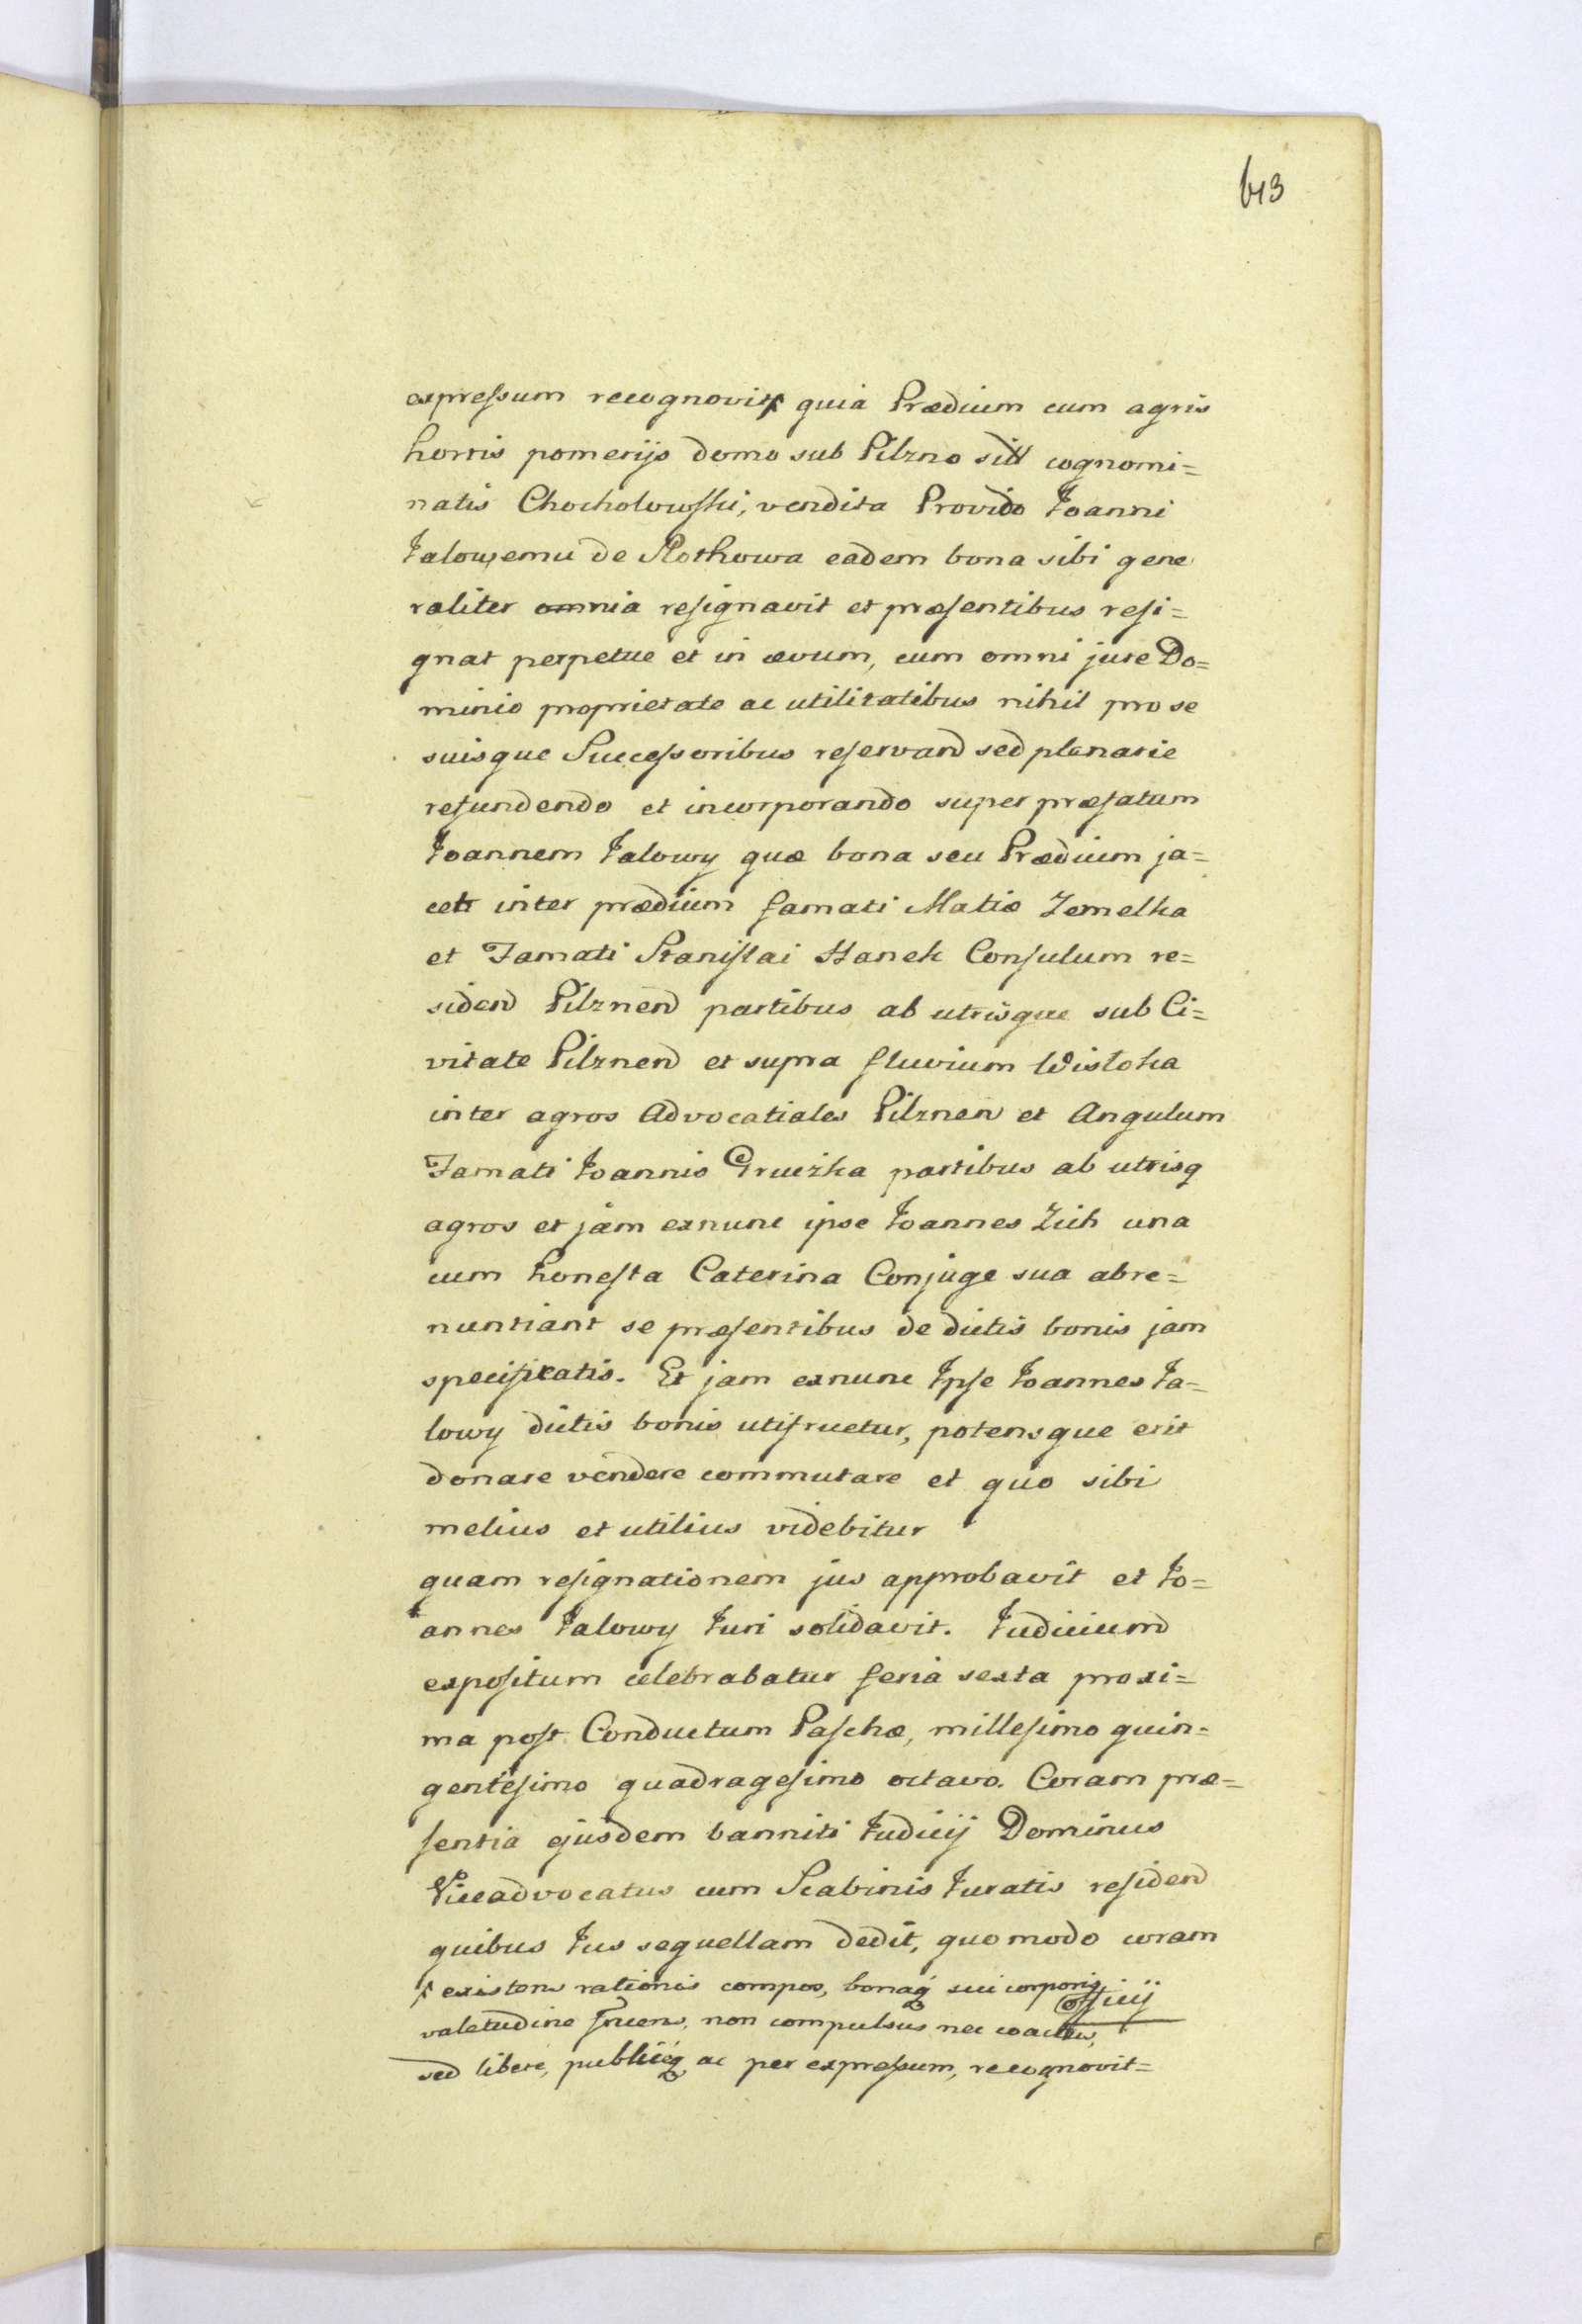 643
expressum recognovit quia Prædium cum agris
hortis pomerijs domo sub Pilzno sitt cognomi=
natis Chocholowski, vendita Provido Joanni
Jalowemu de Rothowa eadem bona sibi gene
raliter omnia resignavit et præsentibus resi=
gnat perpetue et in ævum, cum omni jure Do=
minio proprietate ac utilitatibus nihil pro se
suisque Successoribus reservand sed plenarie
refundendo et incorporando super præfatum
Joannem Jalowy quæ bona seu Prædium ja=
cet inter prædium famati Matiæ Zemelka
et Famati Stanislai Hanek Consulum re=
siden Pilznen partibus ab utrisque sub Ci=
vitate Pilznen et supra fluvium Wisloka
inter agros Advocatiales Pilznen et Angulum
Famati Joannis Gruczka partibus ab utrisq
agros et jam exnunc ipse Joannes Zich una
cum honesta Caterina Conjuge sua abre=
nuntiant se præsentibus de dictis bonis jam
specificatis. Et jam exnunc Ipse Joannes Ja=
lowy dictis bonis utifruetur, potensque erit
donare vendere commutare et quo sibi
melius et utilius videbitur
quam resignationem jus approbavit et Jo=
annes Jalowy Juri solidavit. Judicium
expositum celebrabatur feria sexta proxi=
ma post Conductum Paschæ, millesimo quin=
gentesimo quadragesimo octavo. Coram præ=
sentia ejusdem banniti Judicij Dominus
Viceadvocatus cum Scabinis Juratis residen
quibus Jus sequellam dedit, quomodo coram
officij
existens rationis compos, bonaq sui corporis
valetudine fruens, non compulsus nec coactus,
sed libere, publiceq ac per expressum, recognovit=